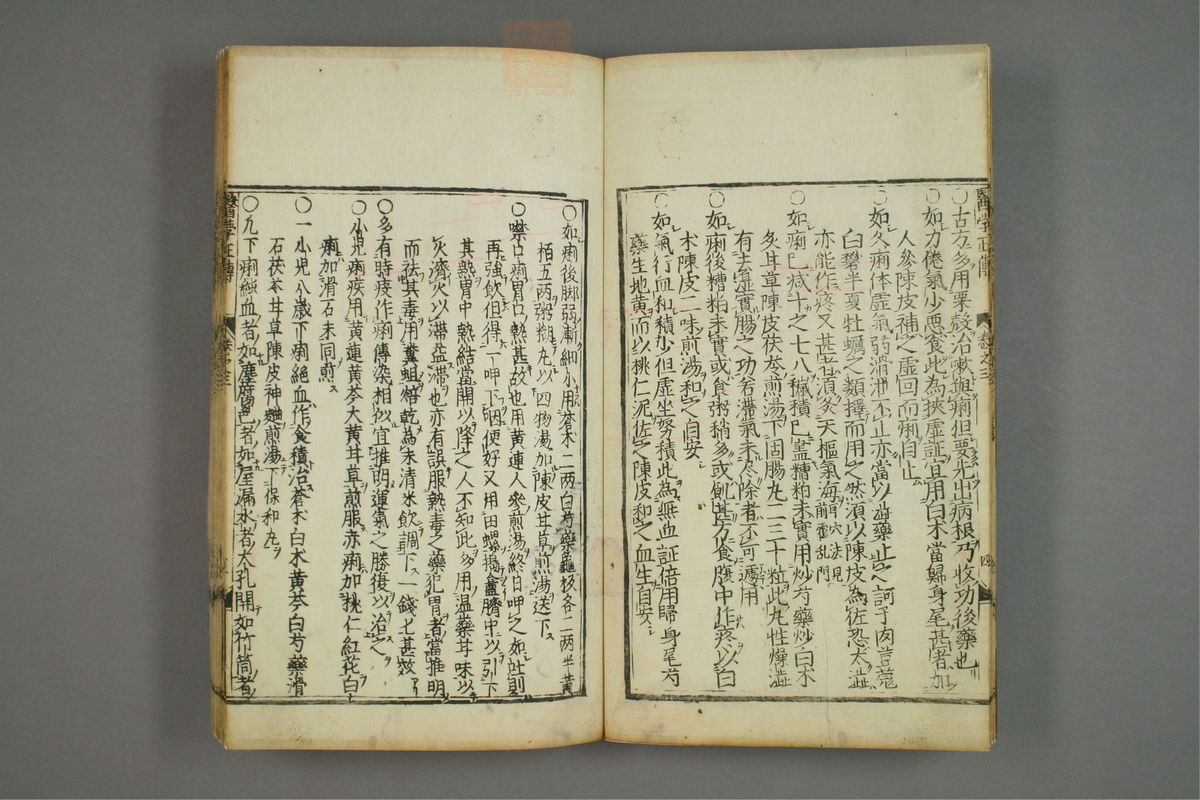 ○古方多用罌殼治嗽與痢但要先出病根乃收功後藥也
○如力倦氣小惡食此為挾虛証宜用白术當歸身尾甚者加
人參陳皮補之虛回而痢自止
○如久痢体虛氣弱滑泄不止亦當以澁藥止之訶子肉荳蔲
白礬半夏牡蠣之類擇而用之然須以陳皮為佐恐太澁
亦能作疼又甚者須灸天樞氣海前穴法見霍乱門
○如痢已減十之七八穢積已盡糟粕未實用炒芍藥炒白术
炙甘草陳皮茯苓煎湯下固腸丸二三十粒此丸性燥
有去濕實腸之功若滯氣未尽除者不可遽用
○如痢後糟粕未實或食粥稍多或飢甚方食腹中作疼以白
术陳皮二味煎湯和之自安
○如氣行血和積少但虛坐努積此為無血証倍用歸身尾芍
藥生地黄而以桃仁泥佐之陳皮和之血生自安
○如痢後脚弱漸細小用蒼术二两白芍藥龜板各二两半黄
栢五两粥糊丸以四物湯加陳皮甘草煎湯送下
○噤口痢胃口熱甚故也用黄連人參煎湯終日呷之如吐則
再強飲但得一呷下咽便好又用田螺搗盦臍中以引下
其熱胃中熱結當開以降之人不知此多用温藥甘味以
火濟火以滯益滯也亦有誤服熱毒之藥犯胃者當推明
而祛其毒用糞蛆焙乾為末清米飲調下一錢匕甚效
○多有時疫作痢傳染相似宜推明運氣之勝復以治之
○小児痢疾用黄連黄芩大黄甘草煎服赤痢加桃仁紅花白
痢加滑石末同煎
○一小児八歳下痢絕血作食積治蒼术白术黄芩白芍藥滑
石茯苓甘草陳皮神麯煎湯下保和丸
○凢下痢純血者如塵腐色者如屋漏水者大孔開如竹筒者
醫學正傳
卷之三
四
醫學正傳
卷之三